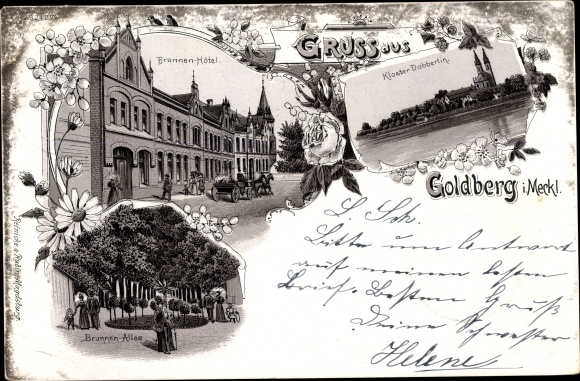 GRUSS aus
Brunnen-Hôtel.
Kloster Dobbertin.
Goldberg i/Meckl.
Brunnen-Allee
L. Sch.
Bitte um Antwort
auf meinen letzten
Brief. Besten Gruß
Deine Schwester
Helene